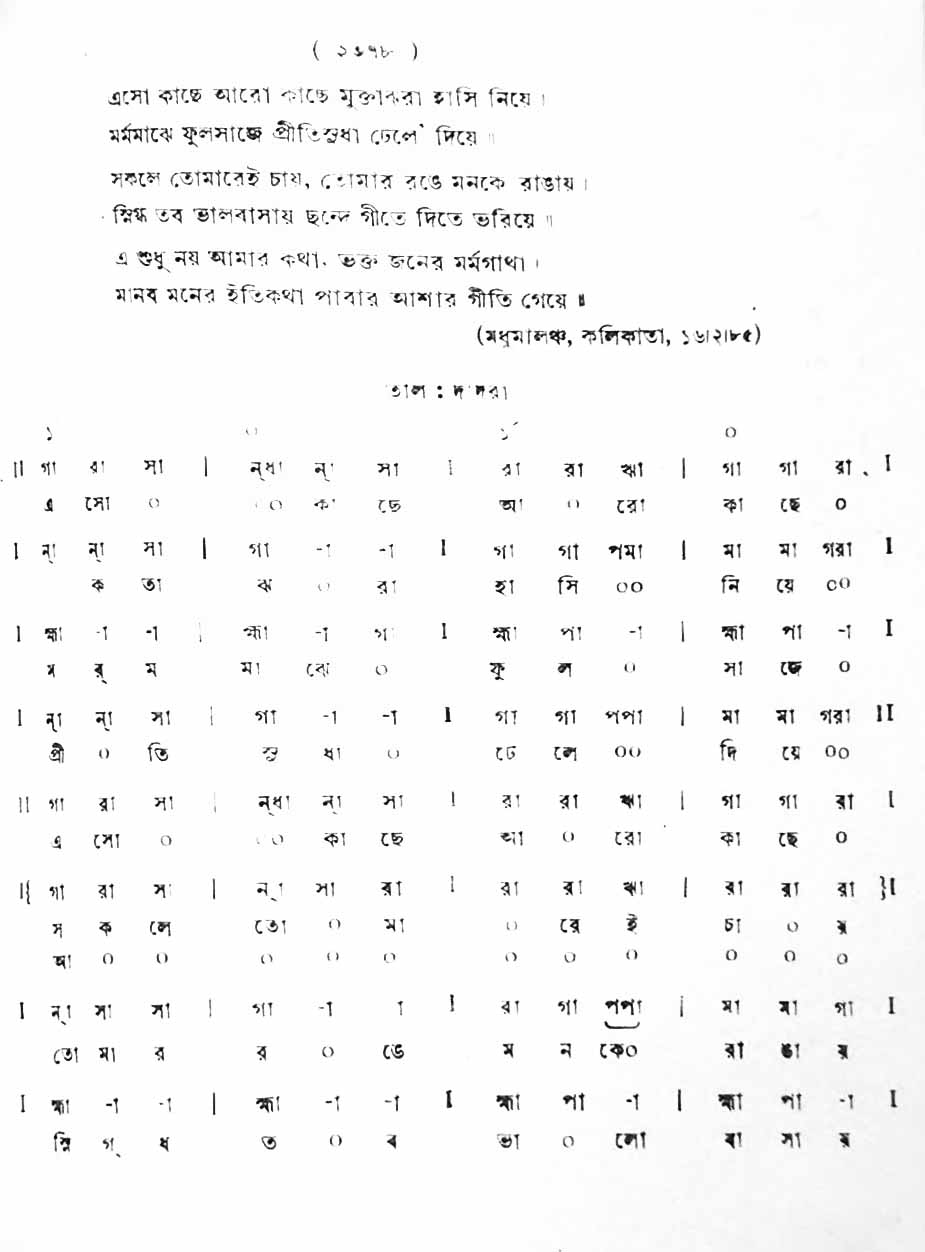 ( ২৬৭৮ )
এসো কাছে আরো কাছে মুক্তাঝরা হাসি নিয়ে ।
মর্মমাঝে ফুলসাজে প্রীতিসুধা ঢেলে দিয়ে ॥
সকলে তোমারেই চায়, তোমার রঙে মনকে রাঙায় ।
স্নিগ্ধ তব ভালবাসায় ছন্দে গীতে দিতে ভরিয়ে ॥
এ শুধু নয় আমার কথা, ভক্ত জনের মর্মগাথা ।
মানব মনের ইতিকথা পাবার আশার গীতি গেয়ে ॥
(মধুমালঞ্চ, কলিকাতা, ১৬।২।৮৫)
তাল : দাদরা
১ ০ ১´ ০
॥ গা রা সা | ন্‌ধা ন্‌া সা I রা রা ঋা | গা গা রা I
এ সো ০ ০০ কা ছে আ ০ রো কা ছে ০
I ন্‌া ন্‌া সা | গা -া -া I গা গা পমা | মা মা গরা I
ক তা ঝ ০ রা হা সি ০০ নি য়ে ০০
I হ্মা -া -া | হ্মা -া গা I হ্মা পা -া | হ্মা পা -া I
ম র্ ম মা ঝে ০ ফু ল ০ সা জে ০
I ন্‌া ন্‌া সা | গা -া -া I গা গা পপা | মা মা গরা II
প্রী ০ তি সু ধা ০ ঢে লে ০০ দি য়ে ০০
II গা রা সা | ন্‌ধা ন্‌া সা I রা রা ঋা | গা গা রা I
এ সো ০ ০০ কা ছে আ ০ রো কা ছে ০
I{ গা রা সা | ন্‌া সা রা I রা রা ঋা | রা রা রা }I
স ক লে তো ০ মা ০ রে ই চা ০ য়
আ ০ ০ ০ ০ ০ ০ ০ ০ ০ ০ ০
I ন্‌া সা সা | গা -া া I রা গা পপা | মা মা গা I
তো মা র র ০ ঙে ম ন কে০ রা ঙা য়
I হ্মা -া -া | হ্মা -া -া I হ্মা পা -া | হ্মা পা -া I
স্নি গ্ ধ ত ০ ব ভা ০ লো বা সা য়